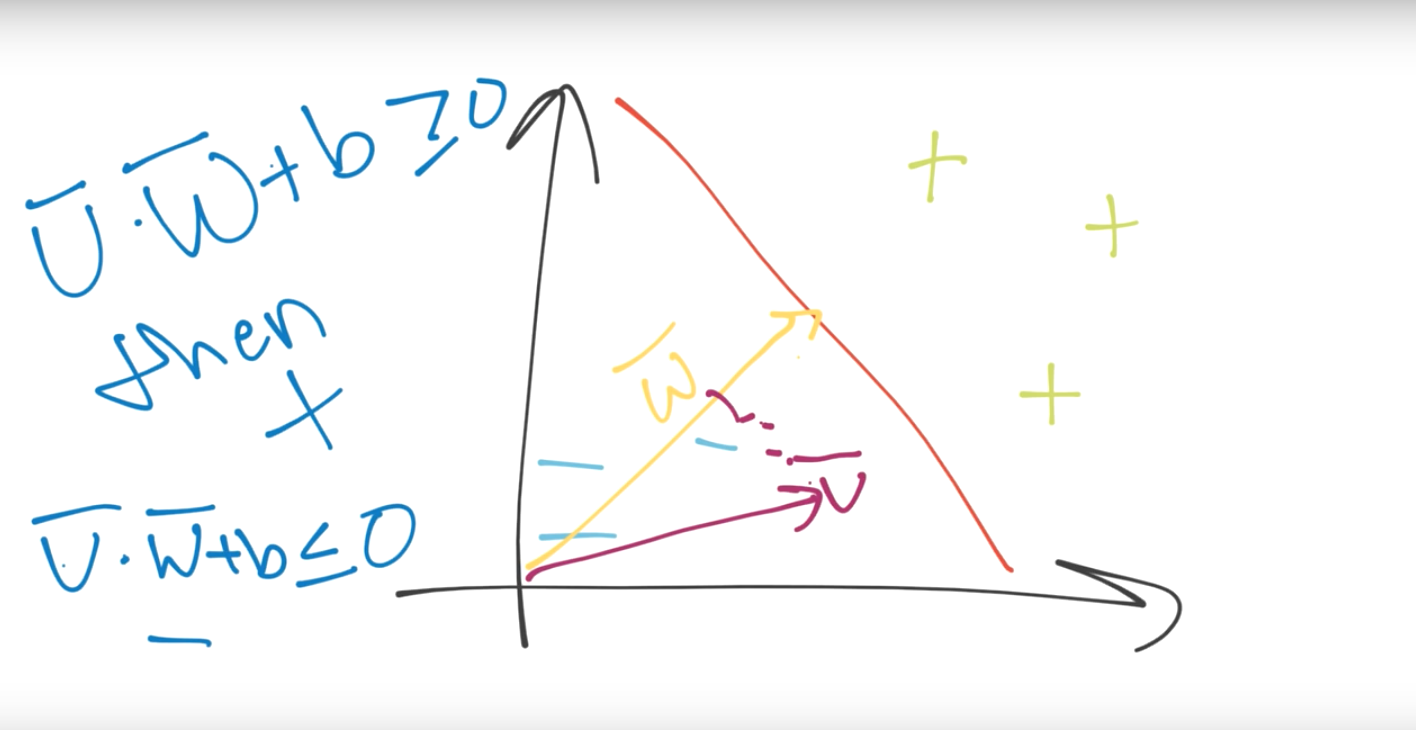 U̅·W̅+b≥0
then
+
U̅·W̅+b≤0
−
w̅
U̅
+
+
+
−
−
−